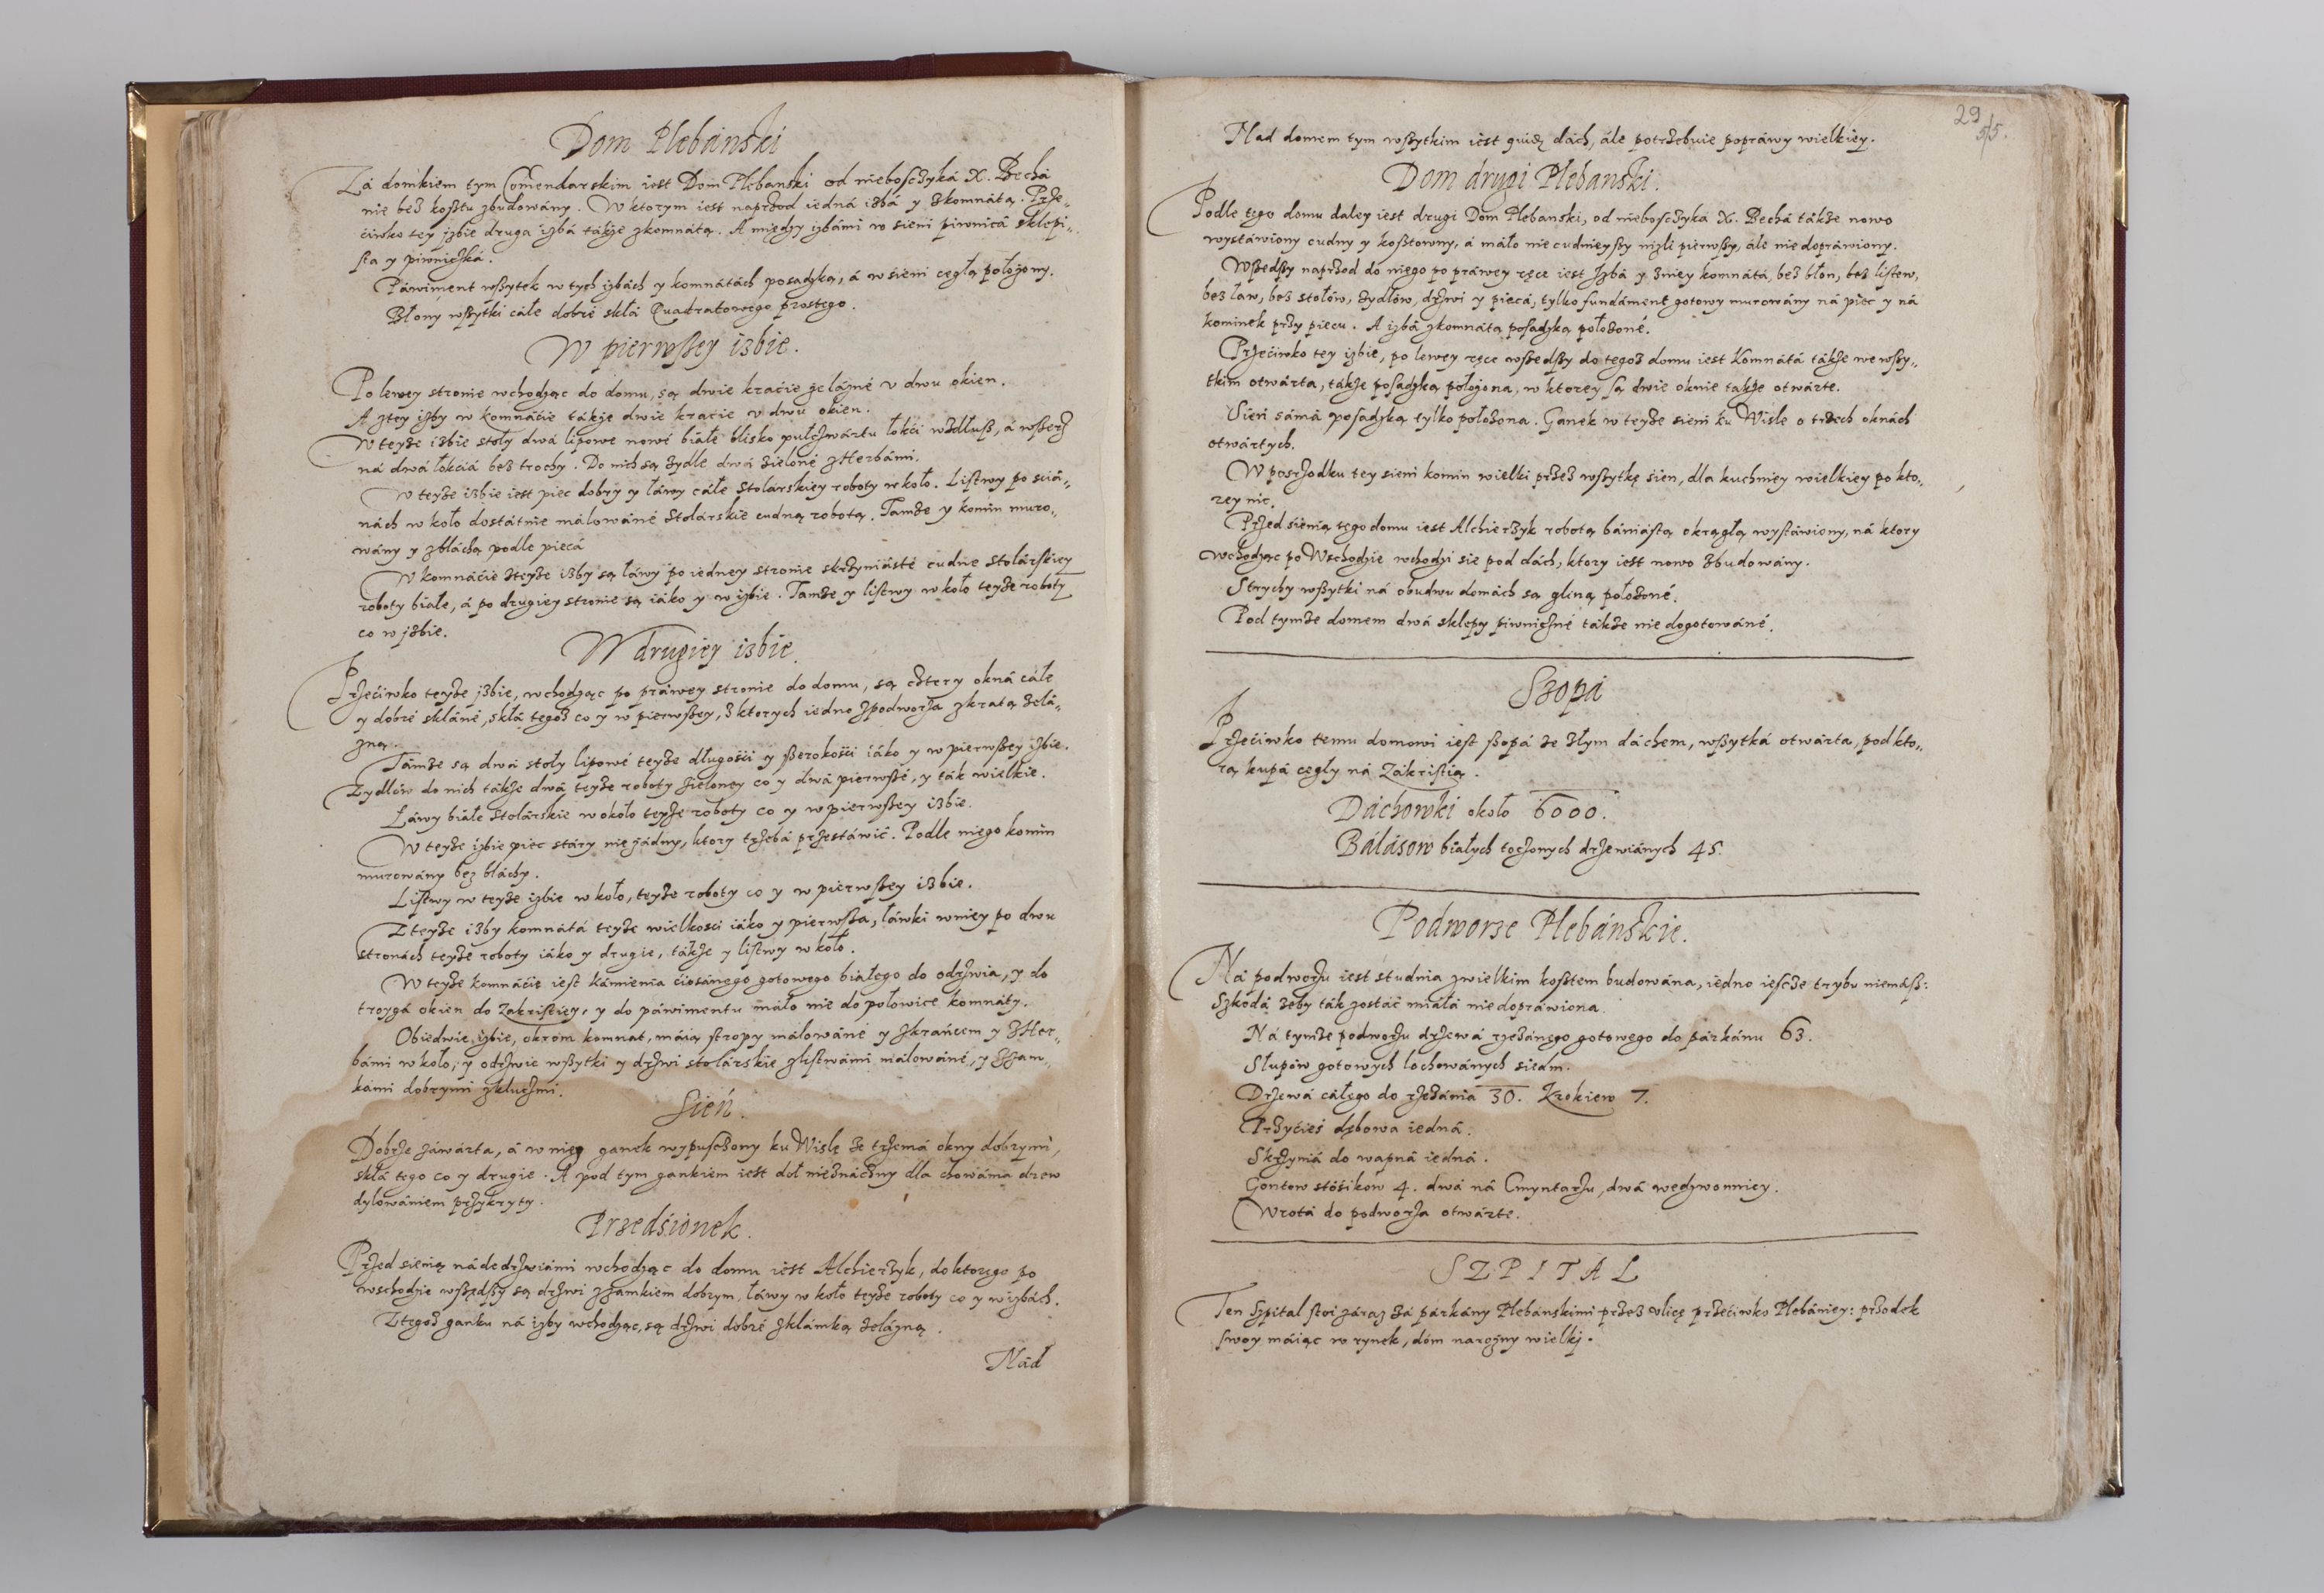 Dom Plebánski
Zá domkiem tym Comendarskim iest Dom Plebanski od nieboſczyká X. Bechá
nie bez koſztu zbudowány. W ktorym iest naprzod iedná izbá y zkomnátą. Prze„
ćiwko tey izbie druga izbá tákże zkomnátą. A między izbámi w śieni piwnicá sklepi„
ſta y piwniczká.
Páwiment wßytek w tych izbách y komnátách posadzką, á w śieni cegłą położony.
Błony wßytki cáłe dobré skłá Quadratowego prostego.
W pierwßey izbie.
Po lewey stronie wchodząc do domu, są dwie kraćie żelázné v dwu okien.
A ztey izby w komnáćie tákże dwie kraćie v dwu okien.
W teyże izbie stoły dwá lipowe nowé białe blisko pułczwártu łokći wzdłuß, á wßerz
ná dwá łokćiá bez trochy. Do nich są zydle dwá zieloné z Herbámi.
W teyże izbie iest piec dobry y łáwy cáłe Stolárskiey roboty wkoło. Liſtwy po sciá„
nách w koło dostátnie málowáné Stolárskié cudną robotą. Tamże y komin muro„
wány y zbláchą podle piecá
W komnáćie zteyże izby są łáwy po iedney stronie skrzyniásté cudne Stolárskiey
roboty białe, á po drugiey stronie są iáko y w izbie. Tamże y liſtwy w koło teyże roboty
co w izbie.
W drugiey izbie.
Przećiwko teyże izbie, wchodząc po práwey stronie do domu, są cztery okná cáłe
y dobré skláné, skłá tegoż co y w pierwßey, z ktorych iedno z podworza z kratą zelá„
zną.
Támże są dwá stoły lipowé teyże długośći y ßerokośći iáko y w pierwßey izbie.
Zydlów do nich tákże dwá teyże roboty zieloney co y dwá pierwßé, y ták wielkie.
Láwy białe Stolárskie w około teyże roboty co y w pierwßey izbie.
W teyże izbie piec stáry nie żádny, ktory trzebá przestáwić. Podle niego komin
murowány bez bláchy.
Liſtwy w teyże izbie w koło, teyże roboty co y w pierwßey izbie.
Z teyże izby komnátá teyże wielkosci iáko y pierwßa, łáwki wniey po dwu
stronách teyże roboty iáko y drugie, tákże y liſtwy w koło.
W teyże komnáćie ieſt kámienia ćiosánego gotowego białego do odrzwia, y do
troygá okien do Zakriſtiey, y do páwimentu máło nie do połowice komnáty.
Obiedwie izbie, okrom komnat, máią ſtropy málowáné y zkráńcem y z Her„
bámi w koło, y odrzwie wßytki y drzwi stolárskie z liſtwámi málowáné, y zzam„
kámi dobrymi zkluczmi.
Sień.
Dobrze záwárta, á w niey ganek wypuſczony ku Wiślę ze trzemá okny dobrymi,
skłá tego co y drugie. A pod tym gankiem iest doł nieznáczny dla chowánia drew
dylowániem przykryty.
Przedśionek.
Przed sienią náde drzwiámi wchodząc do domu iest Alchierzyk, do ktorego po
wschodzie wßedßy są drzwi z zamkiem dobrym, łáwy w koło teyże roboty co y w izbách.
Z tegoż ganku ná izby wchodząc, są drzwi dobré z klámką żelázną.
Nád
29
515.
Nad domem tym wßytkim iest dách, ále potrzebuie popráwy wielkiey.
Dom drugi Plebanski.
Podle tego domu daley iest drugi Dom Plebanski, od nieboſczyká X. Bechá tákże nowo
wystáwiony cudny y koßtowny, á máło nie cudnieyßy niźli pierwßy, ále nie dopráwiony.
Wßedßy naprzod do niego po práwey ręce iest Izbá y zniey komnátá, bez błon, bez liſtew,
bez ław, bez stołów, zydlów, drzwi y piecá, tylko fundáment gotowy murowány ná piec y ná
kominek przy piecu. A izbá z komnátą posadzką położoné.
Przećiwko tey izbie, po lewey ręce wßedßy do tegoż domu iest Komnátá tákże we wßy„
tkim otwárta, tákże posadzką położona, w ktorey są dwie oknie tákże otwárte.
Sień sámá posadzką tylko położona. Ganek w teyże sieni ku Wiśle o trzech oknách
otwártych.
W posrzodku tey sieni komin wielki przez wßytkę sień, dla kuchniey wielkiey po kto„
rey nic.
Przed śienią tego domu iest Alchierzyk robotą bániáſtą okrągłą wyſtáwiony, ná ktory
wchodząc po Wschodzie wchodzi sie pod dách, ktory iest nowo zbudowány.
Strychy wßytki ná obudwu domách są gliną położoné.
Pod tymże domem dwá sklepy piwniczné tákże nie dogotowáné.
Szopá
Przećiwko temu domowi ieſt ßopá ze złym dáchem, wßytká otwárta, pod kto„
rą kupá cegły ná Zákriſtią.
Dáchowki około 6000.
Bálásow białych toczonych drzewiánych 45.
Podworze Plebánskie.
Ná podworzu iest studnia zwielkim koßtem budowána, iedno ieſcze trybu niemáß:
Szkodá żeby ták zostáć miáłá nie dopráwiona.
Ná tymże podworzu drzewá rzezánego gotowego do párkánu 63.
Słupów gotowych lochowánych siedm.
Drzewá cáłego do rzezánia 30. Krokiew 7.
Przyćieś dębowa iedná.
Skrzyniá do wapná iedná.
Gontow stósikow 4. dwá ná Cmyntarzu, dwá wedzwonniey.
Wrotá do podworza otwárte.
SZPITAL
Ten Szpital ſtoi záraz zá párkány Plebanskimi przez vlicę przećiwko Plebániey: przodek
ſwoy máiąc w rynek, dóm narożny wielki.